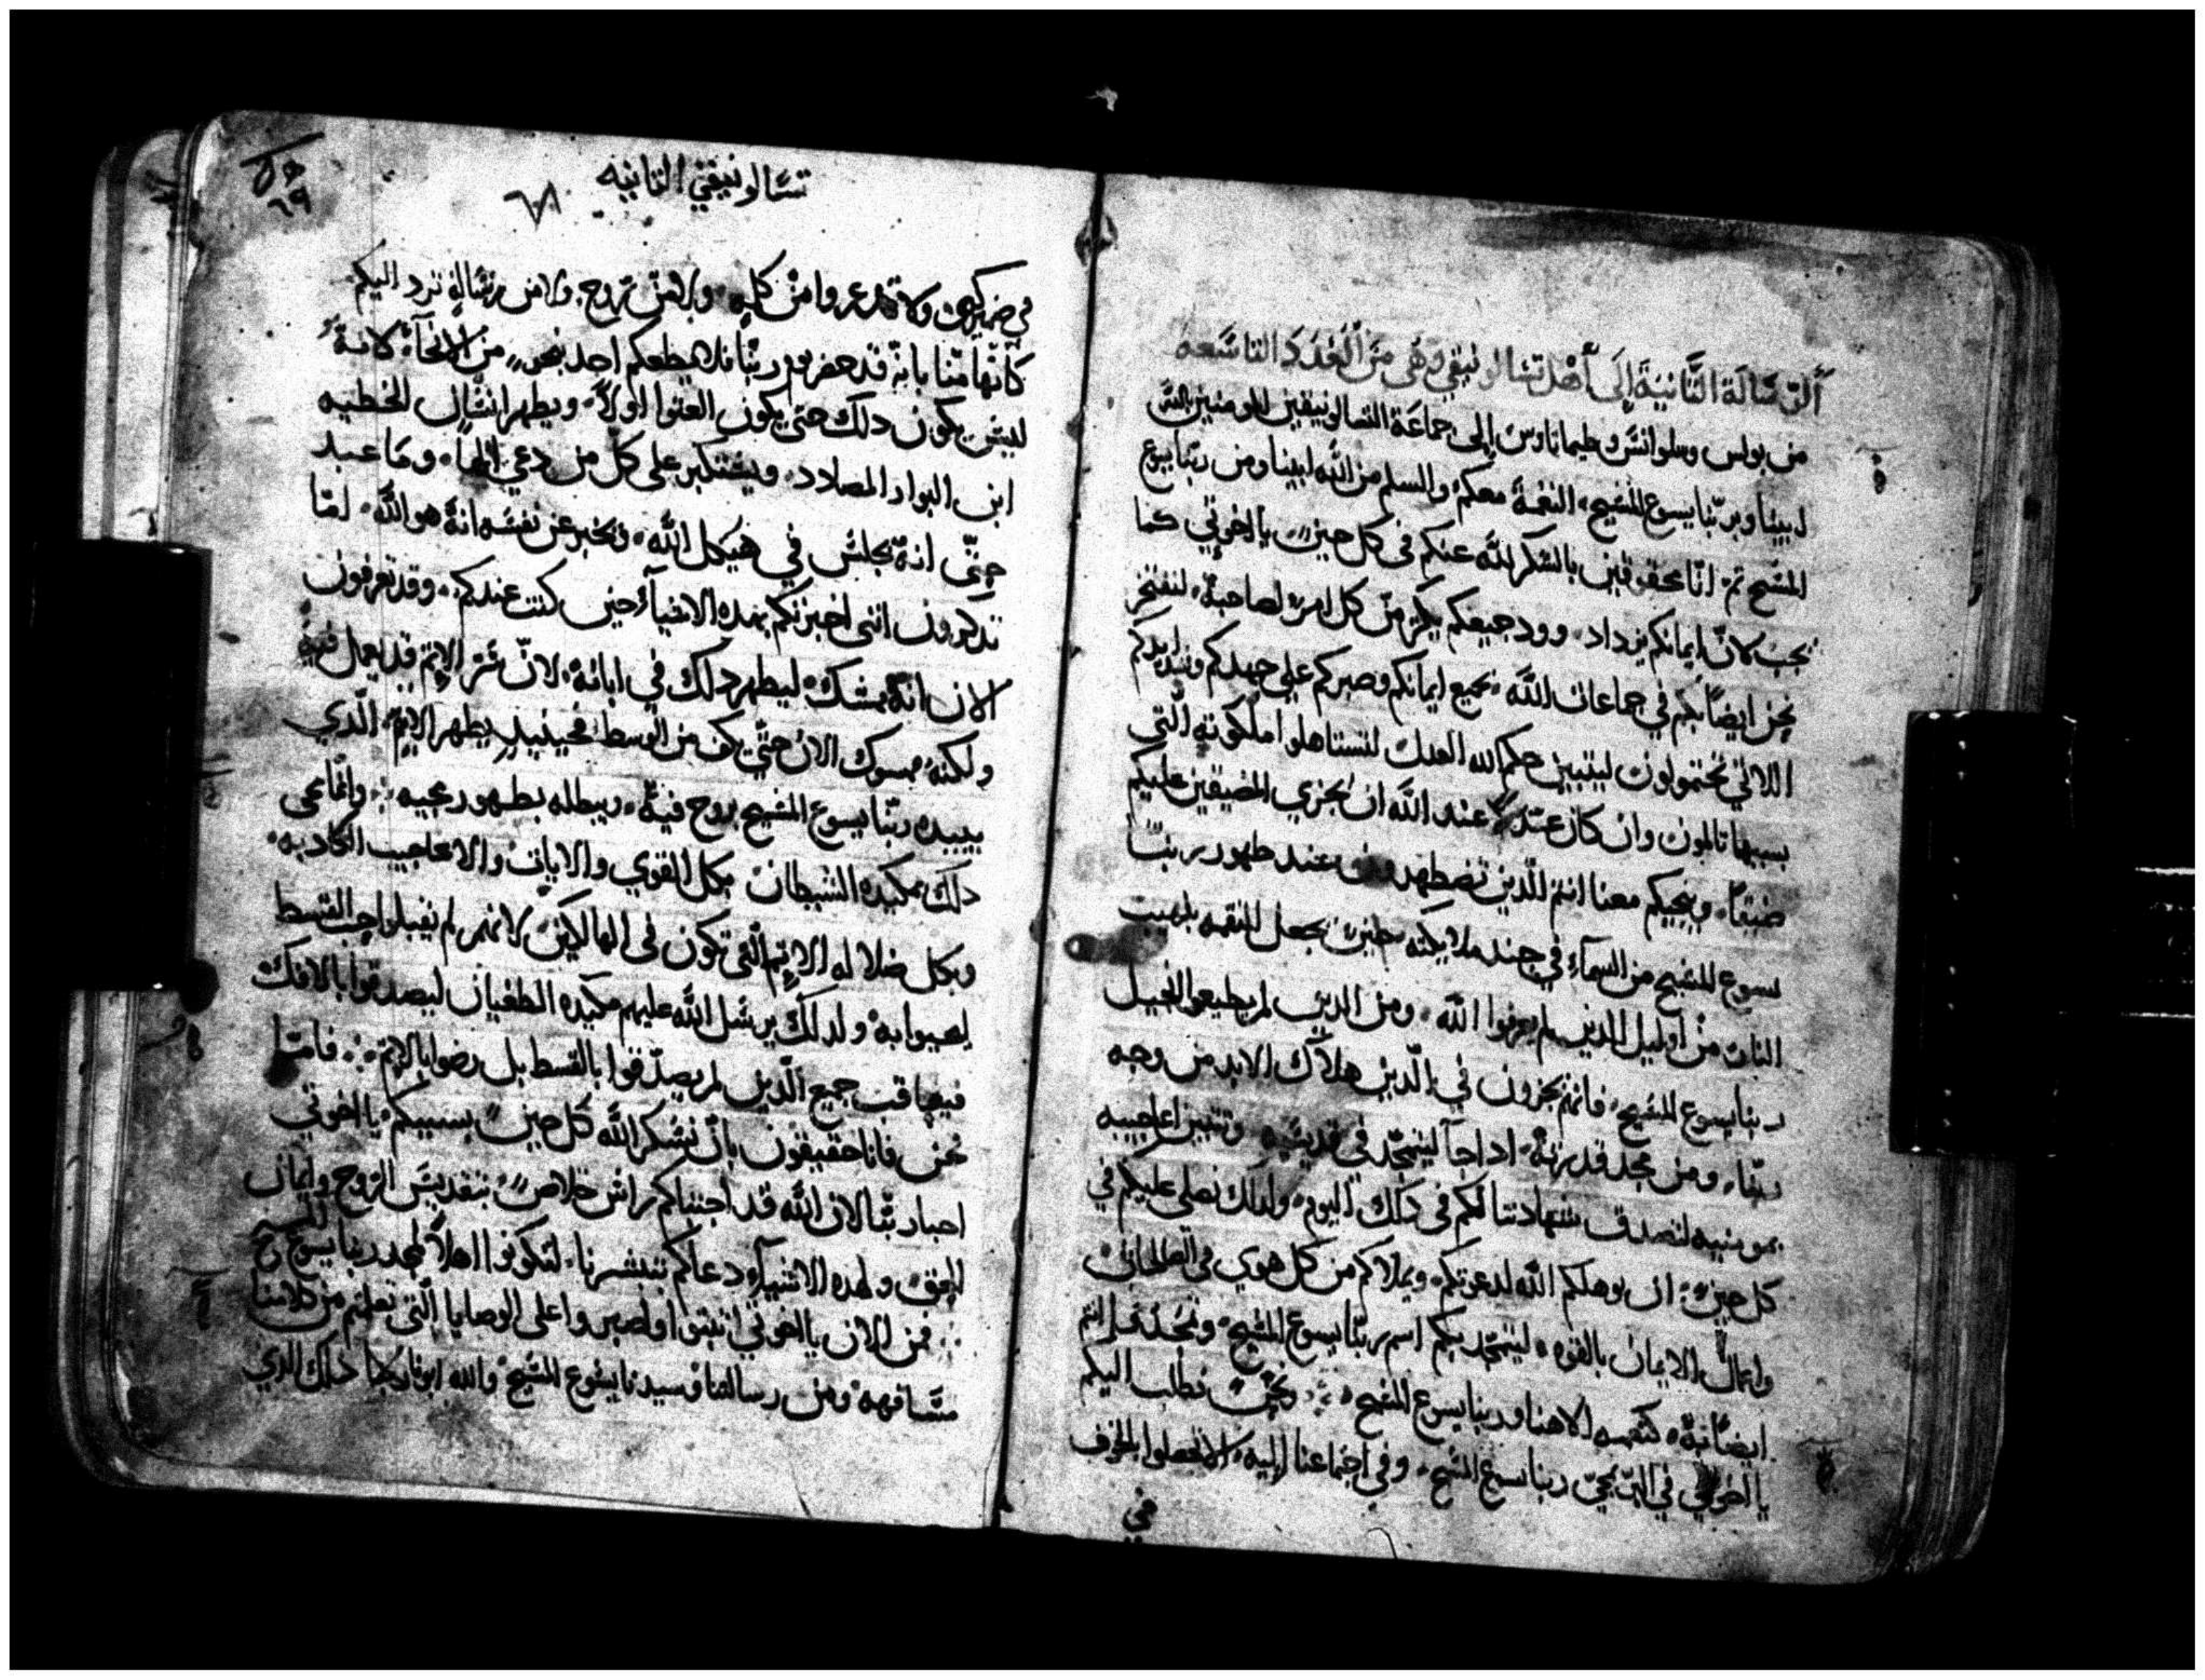 ألرّسَالَة الثَّانيَة إلَى أَهْل تسَالونيقي وَهَى منَ الْعَدَد التاسَعه
من بولس وسلوانس وطيماتاوس إلى جماعَة التسالونيقين المومنين بالله
ابينا وبربّنا يسوع المسيح، النعمة معكم والسلم من الله ابينا ومن ربنا يسوع
المسيح تم انّا محقوقين بالشكر لله عنكم في كل حين يا اخوتي كما
يجب لانّ ايمانكم يزداد، وود جميعكم يكثر من كل امرء لصاحبه، لنفتخر
نحن ايضًا بكم في جماعات الله، بجميع ايمانكم وصبركم على جهدكم وشدايدكم
اللاتي تحتمولون ليتبين حكم الله العدل لتستاهلوا ملكوته الّتي
بسببها تالمون وان كان عدلا عند الله ان يجزي المضيقين عليكم
ضيقاً، وينجيكم معنا انتم الّذين تضطهدون عند ظهور ربنا
يسوع المسيح من السمآء في جند ملايكته حين يجعل النقمه بلهيب
النار من اوليك الذين لم يعرفوا الله، ومن الذين لم يطيعوا انجيل
ربنا يسوع المسيح، فانهم يجزون في الّدين هلاك الابد من وجه
ربّنا، ومن مجد قدرته، اذا جآ ليتمجّد في قديسيه وتتبين اعاجيبه
بمومنيه لتصدق شهادتنا لكم في ذلك اليوم، ولذلك نصلي عليكم في
كل حين، ان يوهلكم الله لدعوتكم، ويملاكم من كل هوي في الصالحات
واعمال الايمان بالقوه، ليتمجّد بكم اسم ربّنا يسوع المسيح، وتمجّد انتم
ايضًا به، كنعمه الاهنا وربنا يسوع المسيح، ونحن نطلب اليكم
يا اخوتي في مجي ربنا يسوع المسيح، وفي اجتماعنا إليه
في
تسَالونيقي الثانيه
٦٨
٥٩
٦٩
في ضميركم، ولا تدعروا من كلمه، ولا من روح، ولا من رسَالة ترد اليكم
كانّها منّا بانه قد حضر يوم ربّنا فلا يطغكم احد بنحو من الانحآء لانهُ
ليس يكون ذلك حتى يكون العتوا اولاً، ويظهر انسَان الخطيه
ابن البوار المضادد، ويستكبر على كل من دعي الهاً، وما عبد
حتّى انهّ يجلس في هيكل الله، ويخبر عن نفسَه انهُ هو الله، امَا
تذكرون انني اخبرتكم بهذه الاشيآء حين كنت عندكم، وقد تعرفون
الان انهُ ممسَك، ليظهر ذلك في ابانه، لانّ سَر الاثم قد يعمل فيه
ولكنهُ مسوك الان حتّى يكف من الوسط فحينيذ يظهر الاثم، الّذي
يبيده ربّنا يسوع المسيح بروح فيه، ويبطله بظهور مجيه، وانّما مجى
ذلك بمكيده الشيطان بكل القوي والايات والاعاجيب الكاذبه،
وبكل ضلاله الاثم الّتى تكون فى الهالكين، لانهم لم يقبلوا حب القسط
ليحيوا به، ولذلك يرسل الله عليهم مكيده الطغيان ليصدقوا بالافك،
فيعاقب جميع الّذين لم يصدّقوا بالقسط بل رضوا بالاثم، فامّا
نحن فانا حقيقون بانّ نشكر الله كل حين بسببكم، يا اخوتي
احبا ربّنا لان الله قد اجتباكم راس خلاص، بتقديس الروح وايمان
الحق، ولهذه الاشيآء دعاكم بتبشيرنا، لتكونوا اهلاً لمجد ربنا يسوع المسيح
فمن الان يا اخوتي اثبتوا واصبروا على الوصايا الّتى تعلمتم من كلامنا
مشَافهه، ومن رسالتنا وسيدنا يسوع المسيح والله ابونا ذلك الذي